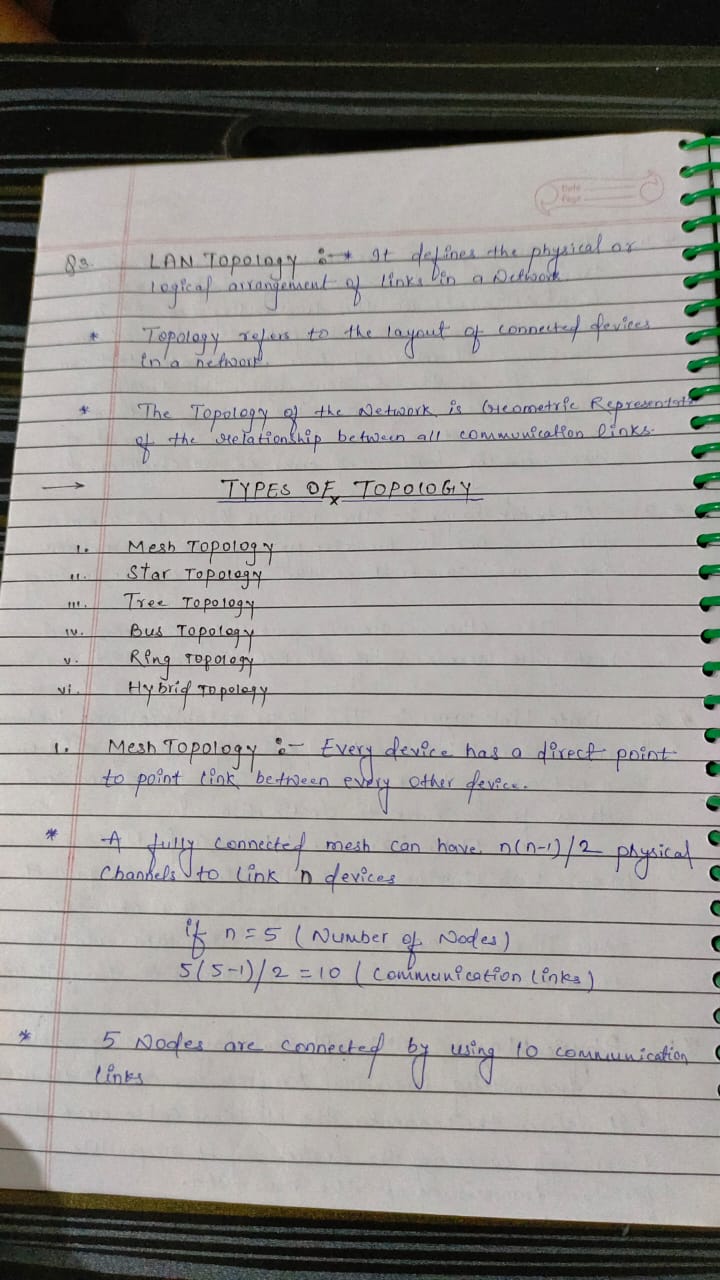 Date
Page
Q3. LAN Topology :-* It defines the physical or
logical arrangement of links in a Network.
* Topology refers to the layout of connected devices
in a network.
* The Topology of the Network is Geometric Representat
of the relationship between all communication links.
→ TYPES OF TOPOLOGY
i. Mesh Topology
ii. Star Topology
iii. Tree Topology
iv. Bus Topology
v. Ring Topology
vi. Hybrid Topology
1. Mesh Topology :- Every device has a direct point
to point link between every other device.
* A fully connected mesh can have n(n-1)/2 physical
Channels to link n devices
if n = 5 (Number of Nodes)
5(5-1)/2 = 10 (Communication links)
* 5 Nodes are connected by using 10 communication
links